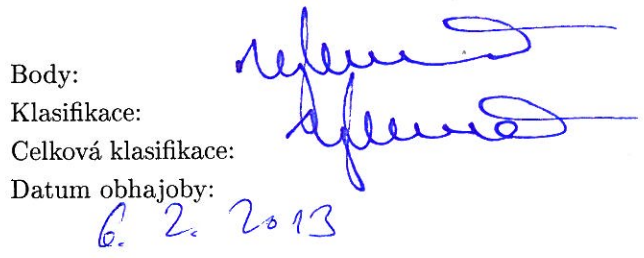 Body:
Klasifikace:
Celková klasifikace:
Datum obhajoby:
6. 2. 2013